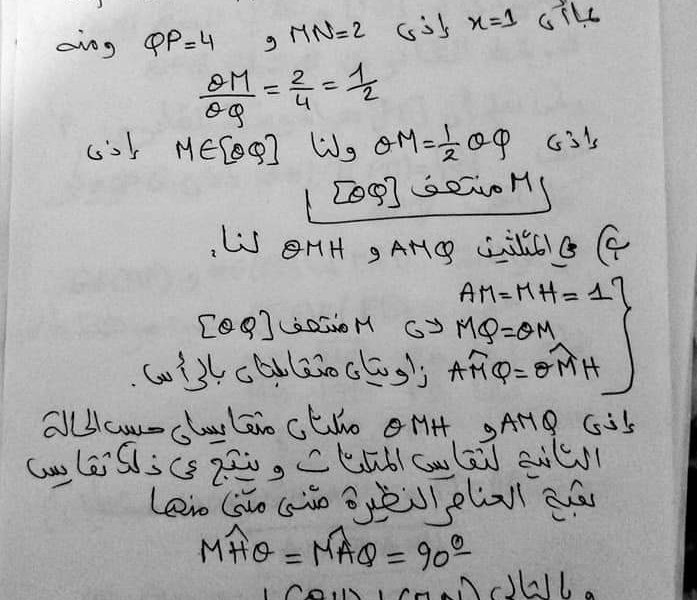 بما أن x=1 إذن MN=2 و QP=4 ومنه
OM/OQ = 2/4 = 1/2
إذن OM=1/2 OQ ولنا M∈[OQ] إذن
M منتصف [OQ]
ب) في المثلثين AMQ و OMH لنا:
AM=MH=1
MQ=OM لأن M منتصف [OQ]
AM̂Q=OM̂H زاويتان متقابلتان بالرأس.
إذن AMQ و OMH مثلثان متقايسان حسب الحالة
الثانية لتقايس المثلثات و ينتج عن ذلك تقايس
بقية العناصر النظيرة مثنى مثنى منها
MĤO = MÂQ = 90°
و بالتالي